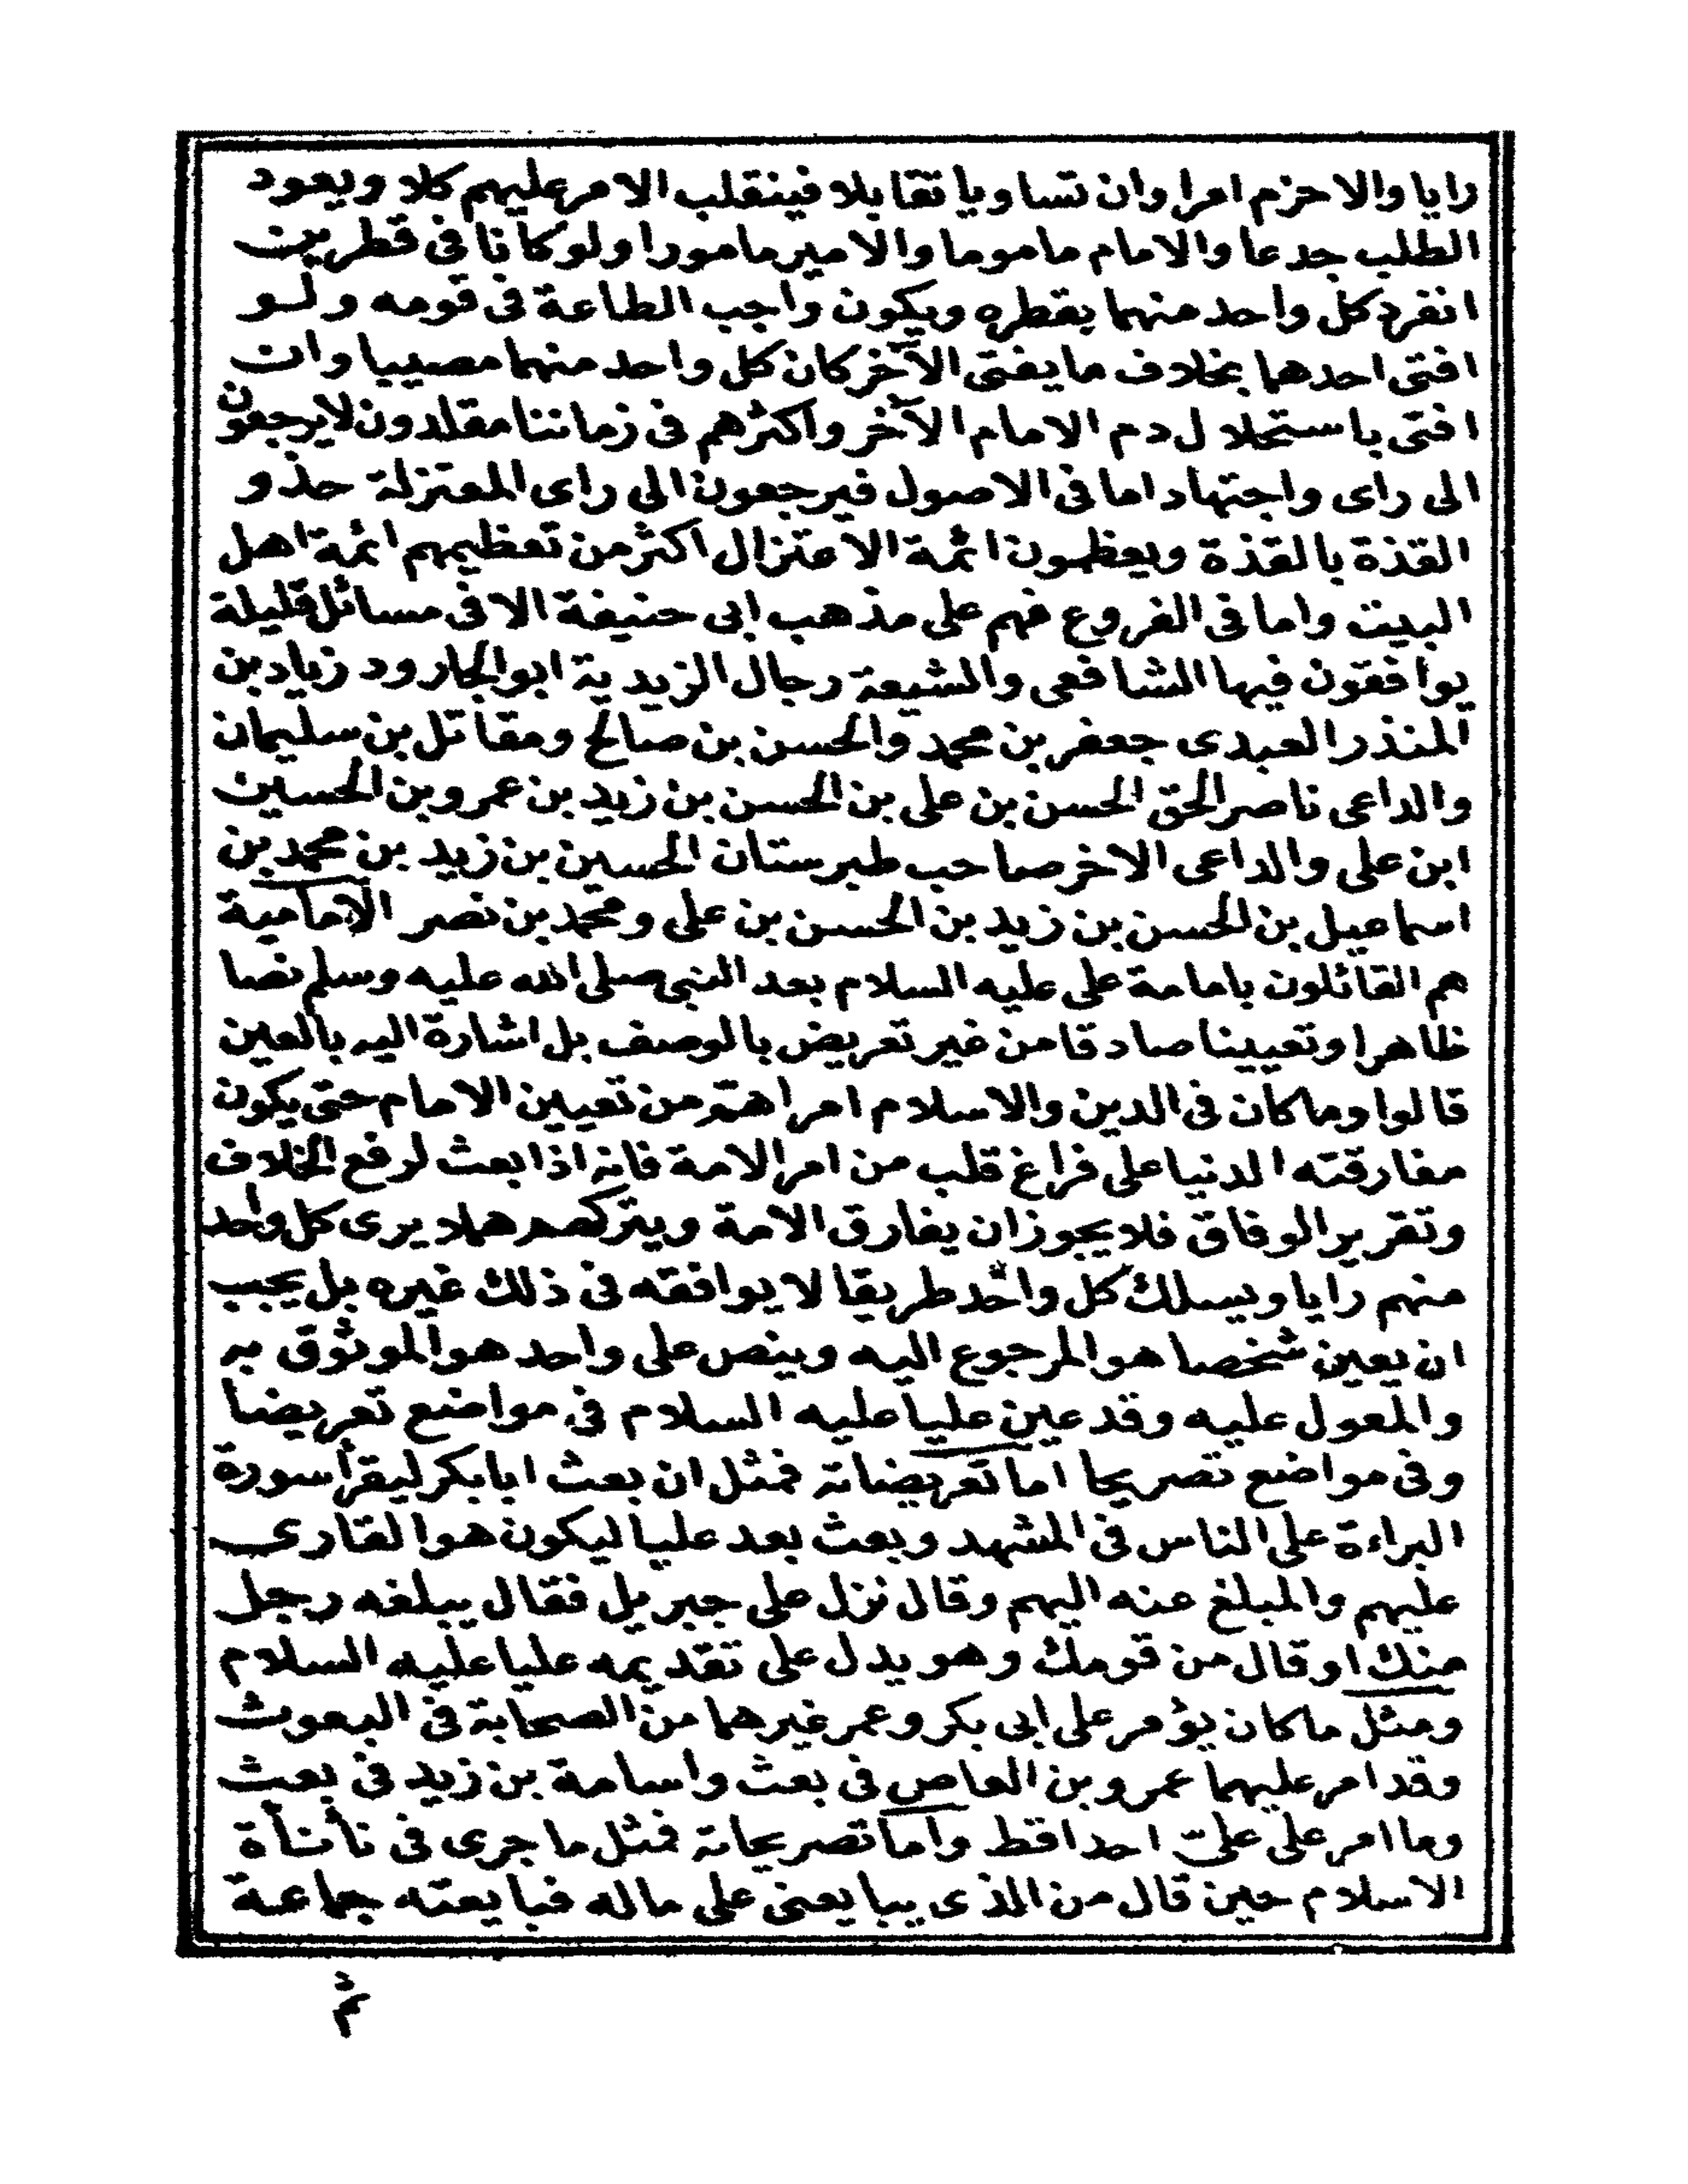 رايا والاحزم امرا وان تساويا تقابلا فينقلب الامر عليهم كلا ويعود
الطلب جدعا والامام ماموما والامير مامورا ولو كانا في قطرين
انفرد كل واحد منهما بقطره ويكون واجب الطاعة في قومه ولو
افتى احدهما بخلاف ما يفتى الآخر كان كل واحد منهما مصيبا وان
افتى باستحلال دم الامام الآخر واكثرهم في زماننا مقلدون لا يرجعون
الى راى واجتهاد اما في الاصول فيرجعون الى راى المعتزلة حذو
القذة بالقذة ويعظمون ائمة الاعتزال اكثر من تعظيمهم ائمة اهل
البيت واما في الفروع فهم على مذهب ابى حنيفة الا في مسائل قليلة
يوافقون فيها الشافعى والشيعة رجال الزيدية ابو الجارود زياد بن
المنذر العبدى جعفر بن محمد والحسن بن صالح ومقاتل بن سليمان
والداعى ناصر الحق الحسن بن على بن الحسن بن زيد بن عمرو بن الحسين
ابن على والداعى الاخر صاحب طبرستان الحسين بن زيد بن محمد بن
اسماعيل بن الحسن بن زيد بن الحسن بن على ومحمد بن نصر الامامية
هم القائلون بامامة على عليه السلام بعد النبى صلى الله عليه وسلم نصا
ظاهرا وتعيينا صادقا من غير تعريض بالوصف بل اشارة اليه بالعين
قالوا وما كان في الدين والاسلام امر اهم من تعيين الامام حتى يكون
مفارقته الدنيا على فراغ قلب من امر الامة فانه اذا بعث لرفع الخلاف
وتقرير الوفاق فلا يجوز ان يفارق الامة ويتركهم هملا يرى كل واحد
منهم رايا ويسلك كل واحد طريقا لا يوافقه في ذلك غيره بل يجب
ان يعين شخصا هو المرجوع اليه وينص على واحد هو الموثوق به
والمعول عليه وقد عين عليا عليه السلام في مواضع تعريضا
وفي مواضع تصريحا اما تعريضاته فمثل ان بعث ابا بكر ليقرأ سورة
البراءة على الناس في المشهد وبعث بعد عليا ليكون هو القارى
عليهم والمبلغ عنه اليهم وقال نزل على جبريل فقال يبلغه رجل
منك او قال من قومك وهو يدل على تقديمه عليا عليه السلام
ومثل ما كان يؤمر على ابى بكر وعمر غيرهما من الصحابة في البعوث
وقد امر عليهما عمرو بن العاص في بعث واسامة بن زيد في بعث
وما امر على علىّ احدا قط واما تصريحاته فمثل ما جرى في نأنأة
الاسلام حين قال من الذى يبايعنى على ماله فبايعته جماعة
ثم